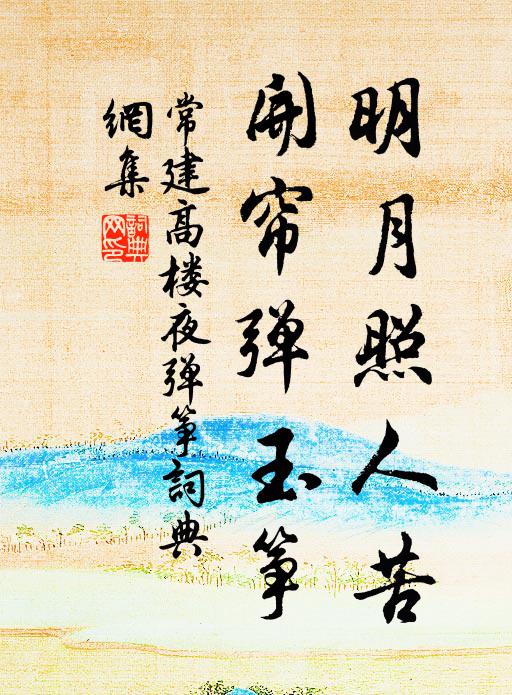 明月照人苦
開帘弹玉筝
常建高楼夜弹筝詞典
網集
詞典网印